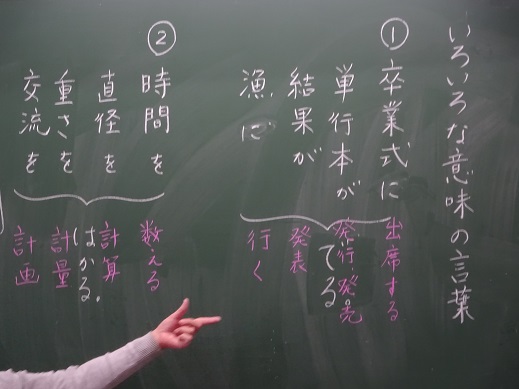 いろいろな意味の言葉
①
卒業式に
単行本が
結果が
漁に
でる。
出席する
発行・発売
発表
行く
②
時間を
直径を
重さを
交流を
はかる。
数える
計算
計量
計画